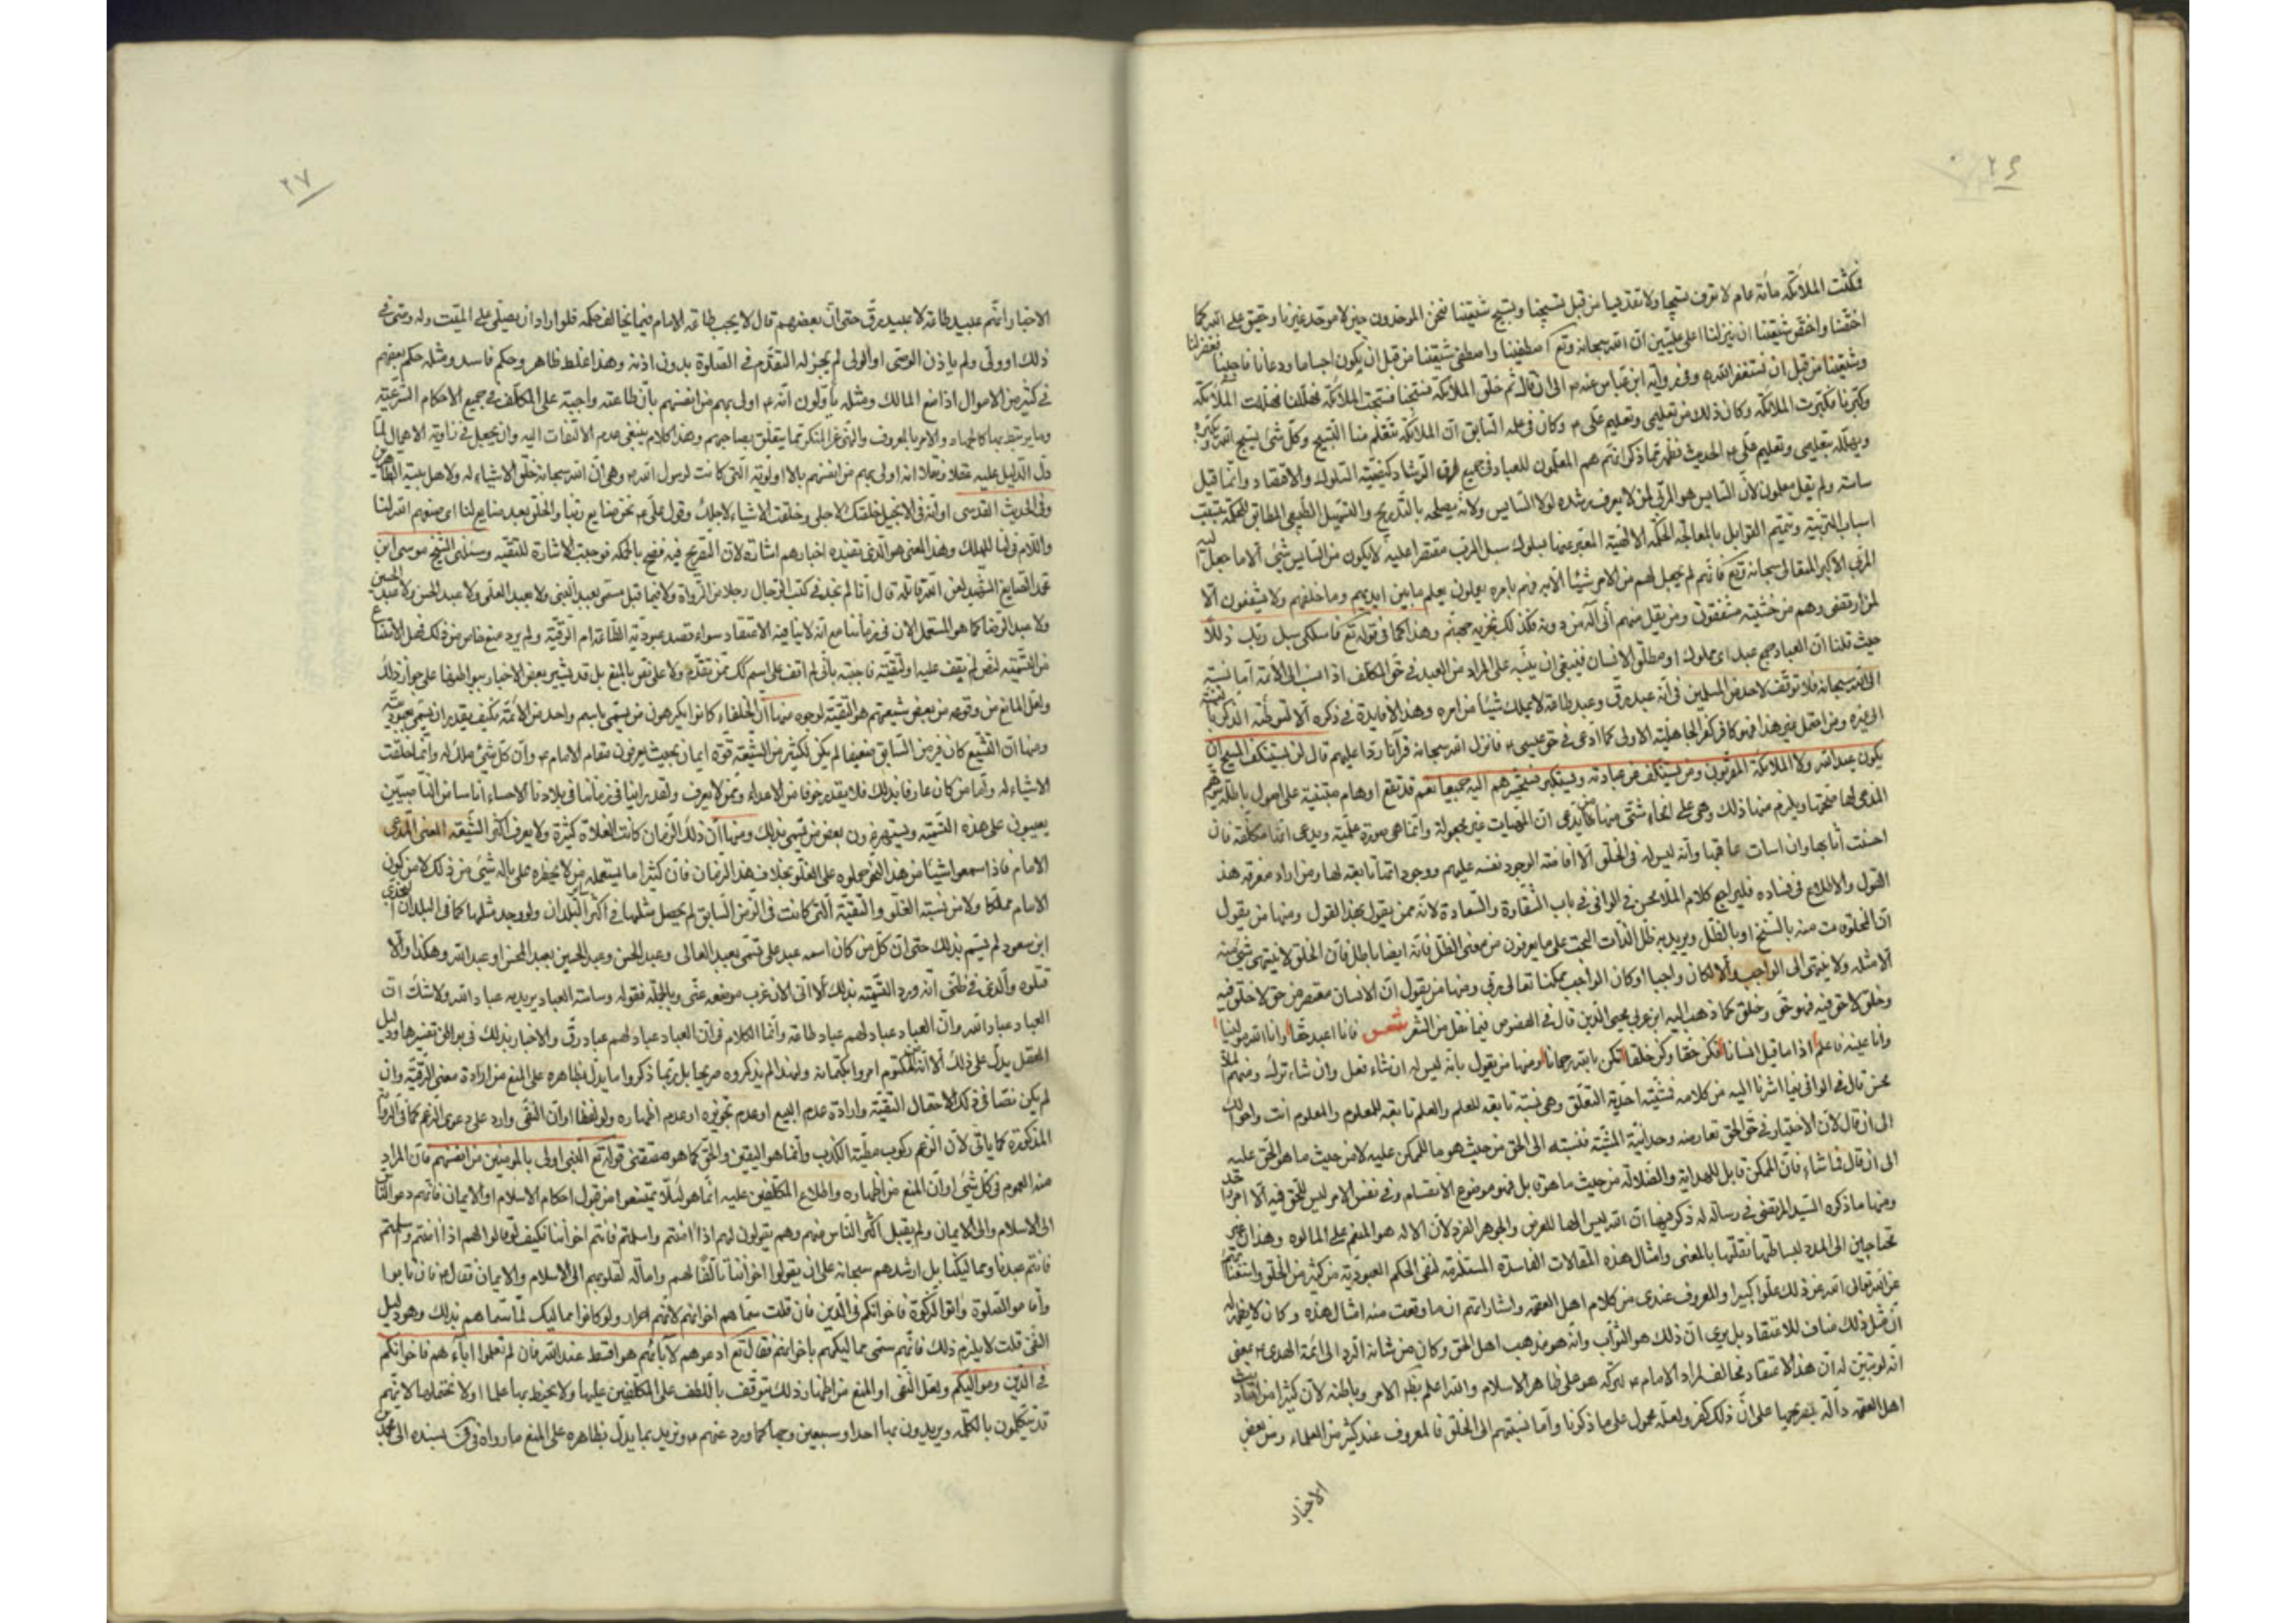 ٢۶
فمكثت الملائكة مأئة عام لا تعرف تسبيحا ولا تقديسا من قبل تسبيحنا وتسبيح شيعتنا فنحن الموحدون حين لا موحد غيرنا وحقيق على الله كما
اختصنا واختص شيعتنا ان ينزلنا اعلى عليين ان الله سبحانه وتع اصطفينا واصطفى شيعتنا من قبل ان يكون اجساما ودعانا فاجبنا فغفر لنا
وشيعتنا من قبل ان نستغفر الله وفي رواية ابن عباس عنه ص الى ان قال ثم خلق الملائكة فسبحنا فسبحت الملائكة فهللنا فهللت الملائكة
وكبرنا فكبرت الملائكة وكان ذلك من تعليمي وتعليم علي ع وكان في علمه السابق ان الملائكة تتعلم منا التسبيح وكل شئ يسبح الله ويكبره
ويهلله بتعليمي وتعليم علي ع الحديث فظهر مما ذكرنا انهم هم المعلمون للعباد في جميع طرق الرشاد كيفية السلوك والاقتصاد وانما قيل
ساسة ولم يقل معلمون لان السايس هو المربي لمن لا يعرف رشده لولا السايس ولانه يصلحه بالتدريج والتسهيل الطبيعي المطابق للحكمة بتسبيب
اسباب التربية وتتميم القوابل بالمعالجة الحكمة الالهية المعبر عنها بسلوك سبل الرب مقتصرا عليه لا يكون من السايس شئ الا ما جعل اليه
المربي الاكبر المتعالي سبحانه وتع فانهم لم يجعل لهم من الامر شيئا الا به فهم بامره يعملون يعلم ما بين ايديهم وما خلفهم ولا يشفعون الا
لمن ارتضى وهم من خشيته مشفقون ومن يقل منهم اني اله من دونه فذلك نجزيه جهنم وهذا كما في قوله تع فاسلكي سبل ربك ذللا
حيث قلنا ان العباد جمع عبد اي مملوك او مطلق الانسان فينبغي ان ينبه على المراد من العبد في حق المكلف اذا نسب الى الائمة اما نسبته
الى الله سبحانه فلا توقف لاحد من المسلمين في انه عبد رق وعبد طاعة لا يملك شيئا من امره وهذا لا فايدة في ذكره الا لتوطئة الذكر بالنسبة
الى غيره ومن احتمل غير هذا فهو كافر كفر الجاهلية الاولى كما ادعي في حق عيسى ع فانزل الله سبحانه قرآنا ردا عليهم قال لن يستنكف المسيح ان
يكون عبدا لله ولا الملائكة المقربون ومن يستنكف عن عبادته ويستكبر فسيحشرهم اليه جميعا نعم قد تقع اوهام مبتنية على اصول باطلة
المدعى لها صحتها ويلزم منها ذلك وهي على انحاء شتى منها من يدعي ان المهيات غير مجعولة وانما هي صورة علمية ويدعي انها مكلفة فان
احسنت اثابها وان اسات عاقبها وانه ليس له في الخلق الا افاضة الوجود نفسه عليهم ووجود انها تابعة لها ومن اراد معرفة هذا
القول والاطلاع في فساده فليراجع كلام الملا محسن في الوافي في باب الشقاوة والسعادة لانه ممن يقول بهذا القول ومنها من يقول
ان المخلوق منه بالسنخ او بالظل ويريد به ظل الذات البحت على ما يعرفون من معنى الظل فانه ايضا باطل فان الخلق لا ينتهي شئ منه
الا مثله ولا ينتهي الى الواجب والا لكان واجبا او كان الواجب ممكنا تعالى ربي ومنها من يقول ان الانسان معتصر من حق لا خلق فيه
وخلق لا حق فيه فهو حق وخلق كما ذهب اليه ابن عربي محيي الدين قال في الفصوص فيما نقل من الشعر شعر فانا اعبد حقا وانا الله مولينا
وانا عينه فاعلم اذا ما قيل انسانا فكن حقا وكن خلقا تكن بالله رحمانا ومنها من يقول بانه ليس له ان شاء فعل وان شاء ترك ومنهم الملا
محسن قال في الوافي فيما اشرنا اليه من كلامه فمشيته احدية التعلق وهي نسبة تابعة للعلم والعلم تابعة للمعلوم والمعلوم انت واحوالك
الى ان قال لان الاختيار في حق الحق تعارضه وحدانية المشية فنسبته الى الحق من حيث هو ما للممكن عليه لا من حيث ما هو الحق عليه
الى ان قال فما شاء فان الممكن قابل للهداية والضلالة من حيث ما هو قابل فهو موضوع الانقسام وفي نفس الامر ليس للحق فيه الا امر واحد
ومنها ما ذكره السيد المرتضى في رسالة له ذكر فيها ان الله ليس الها للعرض والجوهر الفرد لان الاله هو المنعم على المالوه وهذان غير
محتاجين الى المدد لبساطتهما نقلتها بالمعنى وامثال هذه المقالات الفاسدة المستلزمة لنفي الحكم العبودية من كثير من الخلق واستغنائهم
عن الله تعالى الله عن ذلك علوا كبيرا والمعروف عندي من كلام اهل العصمة واشاراتهم ان ما وقعت منه امثال هذه وكان لا يظهر له
ان مثل ذلك مناف للاعتقاد بل يرى ان ذلك هو الثواب وانه هو مذهب اهل الحق وكان من شانه الرد الى ائمة الهدى ع بمعنى
انه لو تبين له ان هذا الاعتقاد مخالف لمراد الامام ع لتركه هو على ظاهر الاسلام والله اعلم بظاهر الامر وباطنه لان كثيرا من احاديث
اهل العصمة دالة بتصريحها على ان ذلك كفر ولعله محمول على ما ذكرنا واما نسبتهم الى الخلق فالمعروف عند كثير من العلماء ومن بعض
الاخبار
٢٧
الاخبار انهم عبيد طاعة لا عبيد رق حتى ان بعضهم قال لا يجب طاعة الامام فيما يخالف حكمه فلو اراد ان يصلي على الميت وله وصى في
ذلك او ولي ولم ياذن الوصي او الولي لم يجز له التقدم في الصلوة بدون اذنه وهذا غلط ظاهر وحكم فاسد ومثله حكم بعضهم
في كثير من الاموال اذا منع المالك ومثله ياولون انه ع اولى بهم من انفسهم بان طاعته واجبة على المكلف في جميع الاحكام الشرعية
وما يرتبط بها كالجهاد والامر بالمعروف والنهي عن المنكر مما يتعلق بصاحبهم وهذا كلام ينبغي عدم الالتفات اليه وان يجعل في زاوية الاهمال لما
دل الدليل عليه عقلا ونقلا انه اولى بهم من انفسهم بالاولوية التي كانت لرسول الله ص وهي ان الله سبحانه خلق الاشياء له ولاهل بيته الطاهرين
وفي الحديث القدسي اوانه في الانجيل خلقتك لاجلي وخلقت الاشياء لاجلك وقول علي ع نحن صنايع ربنا والخلق بعد صنايع لنا اي صنعهم الله لنا
واللام في لنا للملك وهذا المعنى هو الذي تفيده اخبارهم اشارة لان التصريح فيه فضح بالحكمة فوجبت الاشارة للتقية وسئلني الشيخ موسى ابن
محمد الصايغ الشهيد لعن الله قاتله قال انا لم نجد في كتب الرجال رجلا من الرواة ولا فيما قبل مسمى بعبد النبي ولا بعبد العلي ولا عبد الحسن ولا عبد الحسين
ولا عبد الرضا كما هو المستعمل الان في زماننا مع انه لا ينافيه الاعتقاد سواء قصد عبودية الطاعة ام الرقية ولم يرد منع خاص من ذلك فهل الامتناع
من التسمية لنص لم يقف عليه او لتقية فاجبته باني لم اقف على اسم كك ممن تقدم ولا على نص بالمنع بل قد تشير بعض الاخبار ببواطنها على جواز ذلك
ولعل المانع من وقوعه من بعض شيعتهم هو التقية لوجوه منها ان الخلفاء كانوا يكرهون من يسمى باسم واحد من الائمة فكيف يقدر ان يسمى بعبوديته
ومنها ان التشيع كان في زمن السابق ضعيفا لم يكن لكثير من الشيعة قوة ايمان بحيث يعرفون مقام الامام ع وان كل شئ ملك له وانما خلقت
الاشياء له واما من كان عارفا بذلك فلا يقدر خوفا من الاعداء وممن لا يعرف ولقد راينا في زماننا في بلادنا الاحساء اناسا من الناصبيين
يعيبون على هذه التسمية ويستهزءون بعض من تسمى بذلك ومنها ان ذلك الزمان كانت الغلاة كثيرة ولا يعرف اكثر الشيعة المعنى المدعى
الامام فاذا سمعوا شيئا من هذا النحو حملوه على الغلو بخلاف هذا الزمان فان كثيرا ما يستعمله من لا يخطره على باله شئ من ذلك لا من كون
الامام مملكا ولا من نسبة الغلو والتقية التي كانت في الزمن السابق لم يحصل مثلها في اكثر البلدان ولو وجد مثلها كما في البلدان
ابن سعود لم يسم بذلك حتى ان كل من كان اسمه عبد علي تسمى بعبد العالي وعبد الحسن وعبد الحسين بعبد المحسن او عبد الله وهكذا والا
قتلوه والذي في ظني انه ورد التسمية بذلك الا اني الان عزب موضعه عني وبالجملة فقوله وساسة العباد يريد به عباد الله ولا شك ان
العباد عباد الله وان العباد عباد لهم عباد طاعة وانما الكلام في ان العباد عباد لهم عباد رق والاخبار بذلك في بواطن تفسيرها ودليل
العقل يدل على ذلك الا انه من المكتوم امروا بكتمانه ولهذا لم يذكروه صريحا بل ربما ذكروا ما يدل بظاهره على المنع من ارادة معنى الرقية وان
لم يكن نصا في ذلك لاحتمال التقية وارادة عدم البيع او عدم تجويزه او عدم اظهاره ولو لفظا او ان النفي وارد على دعوى الزعم كما في الرواية
المذكورة كما ياتي لان الزعم ركوب مطية الكذب وانما هو اليقين والحق كما هو مقتضى قوله تع النبي اولى بالمومنين من انفسهم فان المراد
منه العموم في كل شئ او ان المنع من اظهاره واطلاع المكلفين عليه انما هو لئلا يمتنعوا من قبول احكام الاسلام او الايمان فانهم دعوا الناس
الى الاسلام والى الايمان ولم يقبل اكثر الناس منهم وهم يقولون لهم اذا امنتم واسلمتم فانتم اخواننا فكيف لو قالوا لهم اذا امنتم وسلمتم
فانتم عبدنا ومماليكنا بل ارشدهم سبحانه على ان يقولوا اخواننا تالفا لهم وامالة لقلوبهم الى الاسلام والايمان فقال ع فان تابوا
واقاموا الصلوة واتوا الزكوة فاخوانكم في الدين فان قلت سماهم اخوانهم لانهم احرار ولو كانوا مماليك لما سماهم بذلك وهو دليل
النفي قلت لا يلزم ذلك فانهم سمى مماليكهم باخوانهم فقال تع ادعوهم لآبائهم هو اقسط عند الله فان لم تعلموا اباءهم فاخوانكم
في الدين ومواليكم ولعل النفي او المنع من اظهار ذلك يتوقف باللطف على المكلفين عليها ولا يحيط بها علما اولا تحتملها لانهم
قد يتكلمون بالكلمة ويريدون بها احدا وسبعين وجها كما ورد عنهم ع ونريد بما يدل بظاهره على المنع ما رواه في بسنده الى محمد بن